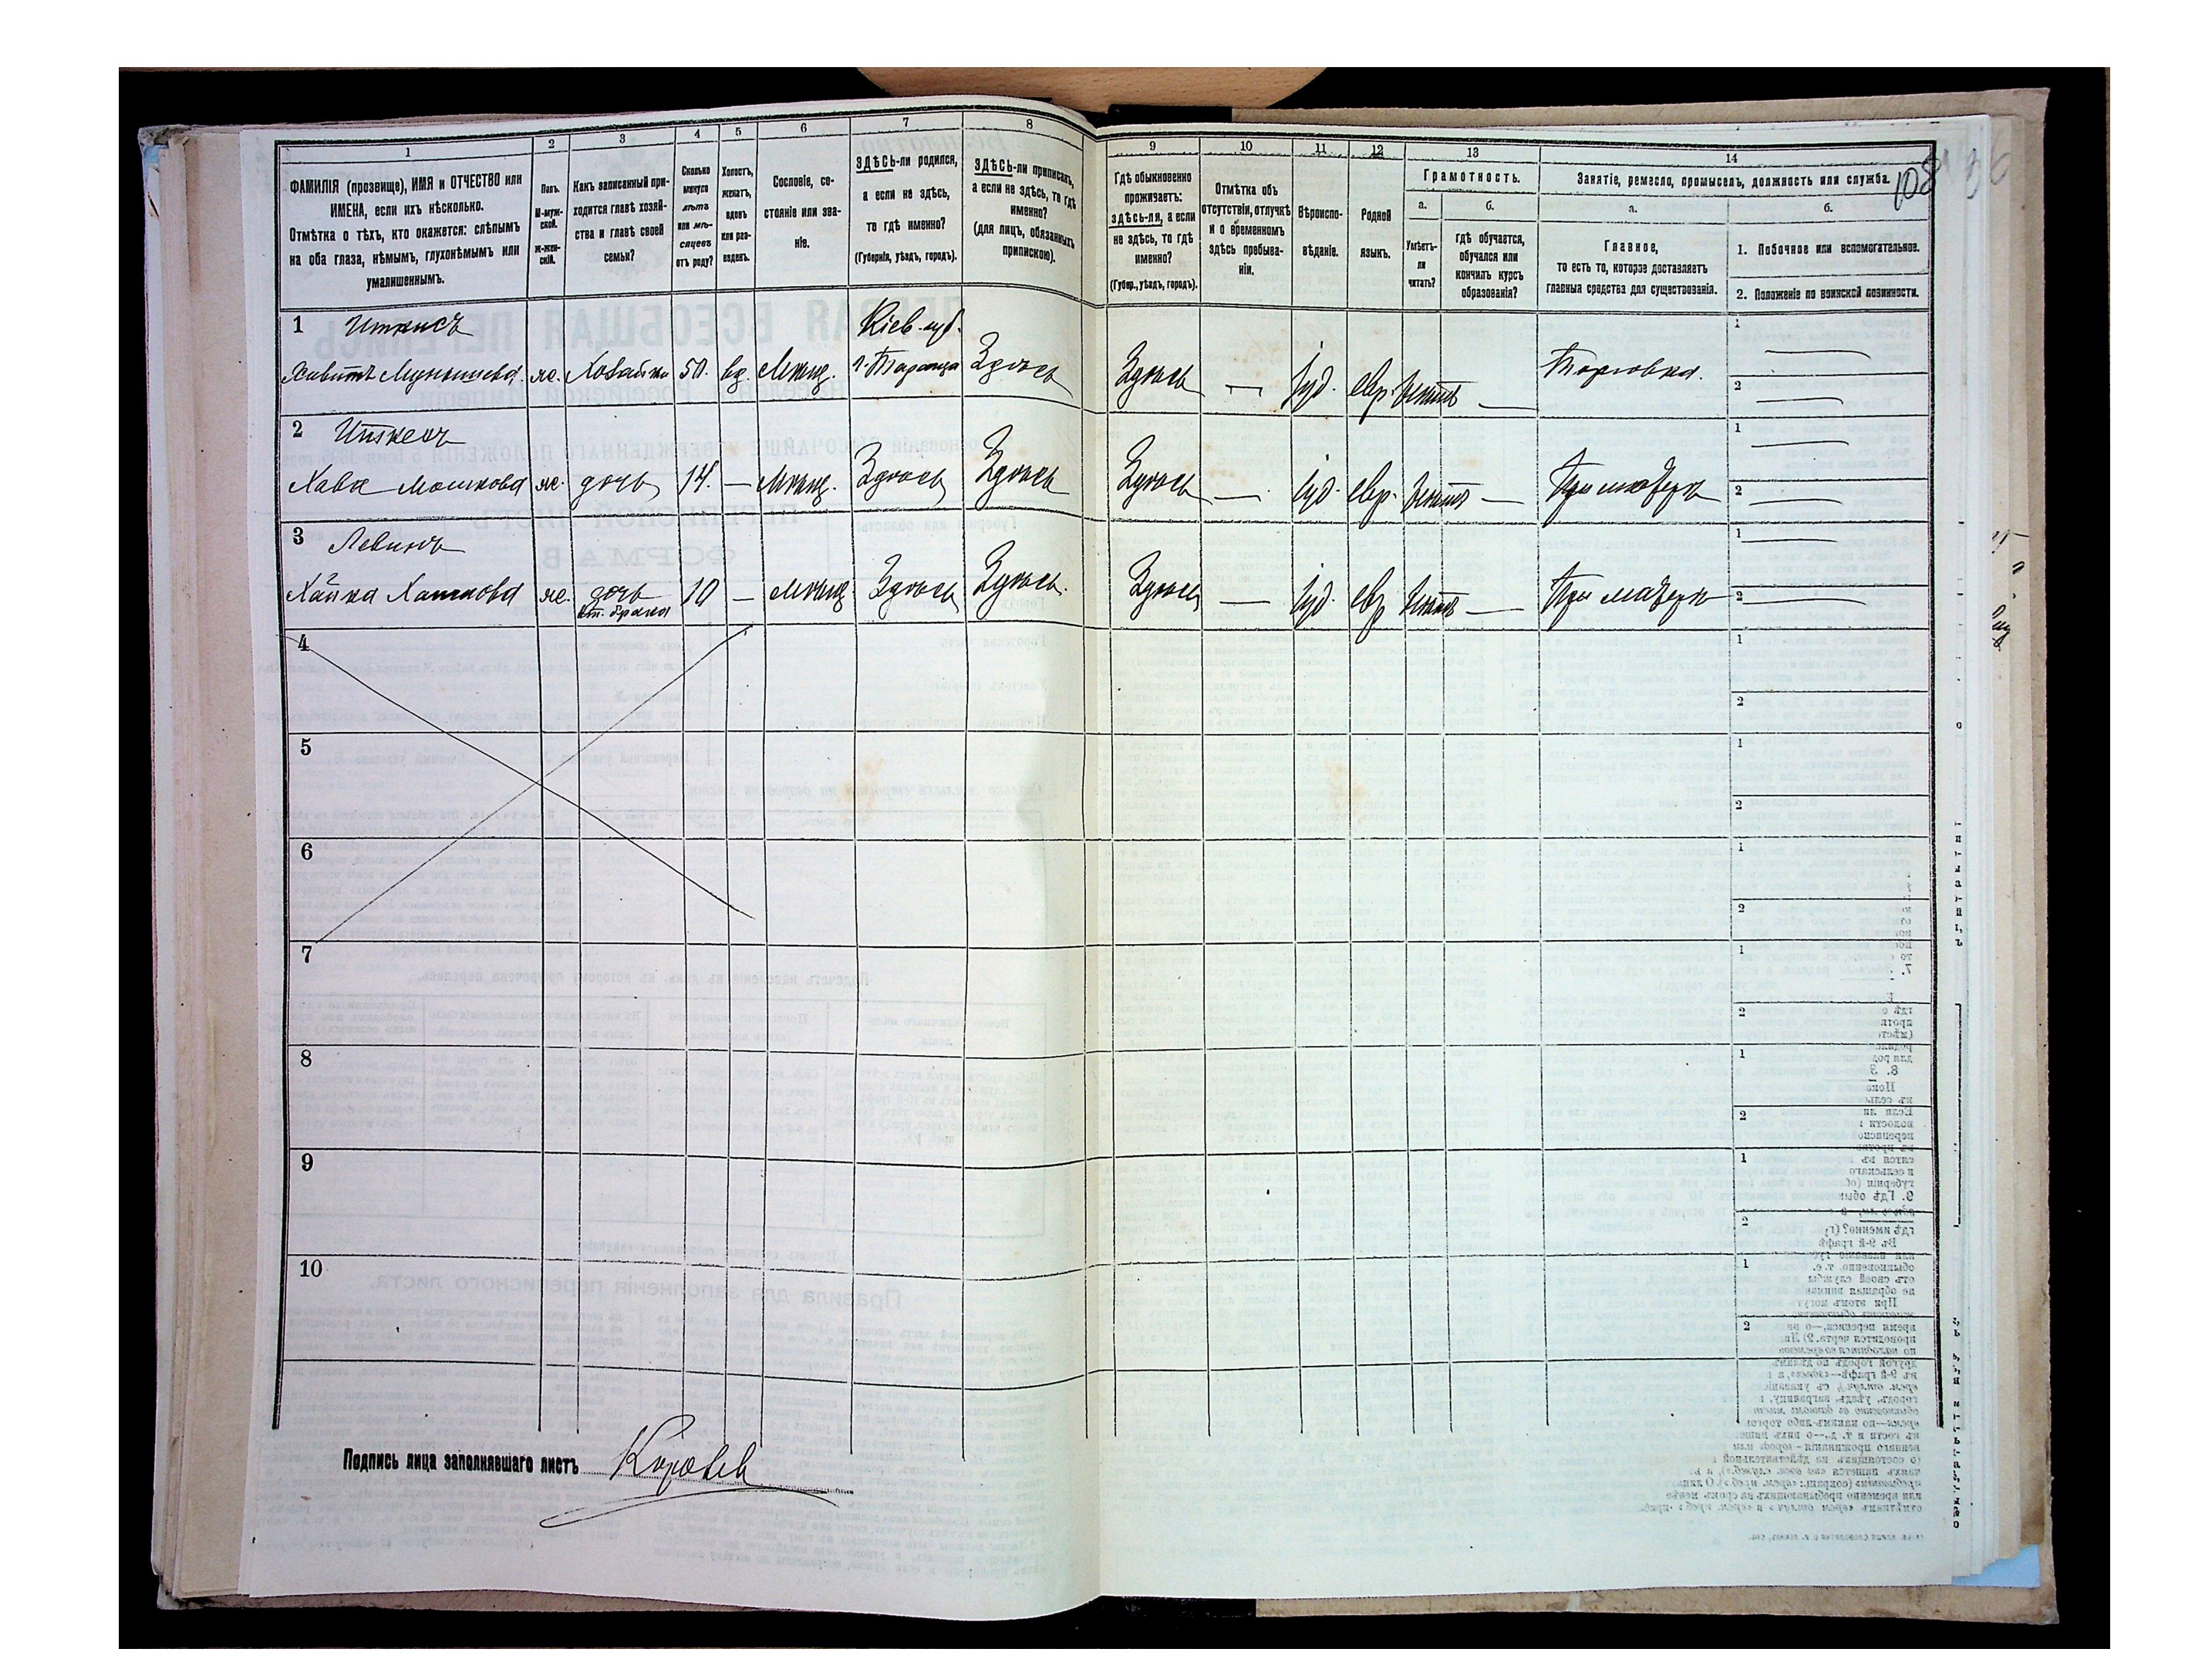 1
2
3
4
5
6
7
8
ФАМИЛІЯ (прозвище), ИМЯ и ОТЧЕСТВО или
ИМЕНА, если ихъ нѣсколько.
Отмѣтка о тѣхъ, кто окажется: слѣпымъ
на оба глаза, нѣмымъ, глухонѣмымъ или
умалишеннымъ.
Полъ.
М-муж-
ской.
Ж-жен-
скій.
Какъ записанный при-
ходится главѣ хозяй-
ства и главѣ своей
семьи?
Сколько
минуло
лѣтъ
или мѣ-
сяцевъ
отъ роду?
Холостъ,
женатъ,
вдовъ
или раз-
веденъ.
Сословіе, со-
стояніе или зва-
ніе.
ЗДѢСЬ-ли родился,
а если не здѣсь,
то гдѣ именно?
(Губернія, уѣздъ, городъ).
ЗДѢСЬ-ли приписанъ,
а если не здѣсь, то гдѣ
именно?
(для лицъ, обязанныхъ
припискою).
9
10
11
12
13
14
108
Гдѣ обыкновенно
проживаетъ:
здѣсь-ли, а если
не здѣсь, то гдѣ
именно?
(Губер., уѣздъ, городъ).
Отмѣтка объ
отсутствіи, отлучкѣ
и о временномъ
здѣсь пребыва-
ніи.
Вѣроиспо-
вѣданіе.
Родной
языкъ.
Грамотность.
а.
б.
Умѣетъ-
ли
читать?
гдѣ обучается,
обучался или
кончилъ курсъ
образованія?
Занятіе, ремесло, промыселъ, должность или служба.
а.
б.
Главное,
то есть то, которое доставляетъ
главныя средства для существованія.
1. Побочное или вспомогательное.
2. Положеніе по воинской повинности.
1 Иткисъ
Мунышева ж. Хозайка 50. вд. Мѣщ. Кіев. губ. г. Тараща Здѣсь Здѣсь — Іуд. евр. Нѣтъ — Торговка. 1 — 2 —
2 Иткесъ
Хава Мошкова ж. дочь 14. — Мѣщ. Здѣсь Здѣсь Здѣсь — Іуд. евр. Нѣтъ — При матери 1 — 2 —
3 Левинъ
Хайка ж. дочь 10 — мѣщ. Здѣсь Здѣсь. Здѣсь — Іуд. евр Нѣтъ — При матери 1 — 2 —
брака
4 1 2
5 1 2
6 1 2
7 1 2
8 1 2
9 1 2
10 1 2
Подпись лица заполнявшаго листъ